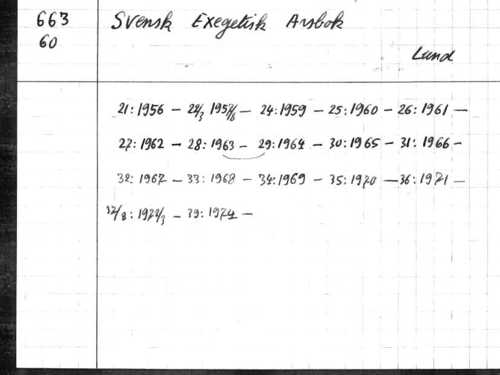 663 Svensk Exegetisk Arsbok
60
Lund
21: 1956 - 22/3 1957/8 - 24: 1959 - 25: 1960 - 26: 1961 -
27: 1962 - 28: 1963 - 29: 1964 - 30: 1965 - 31: 1966 -
32: 1967 - 33: 1968 - 34: 1969 - 35: 1970 - 36: 1971 -
37/8: 1972/3 - 39: 1974 -